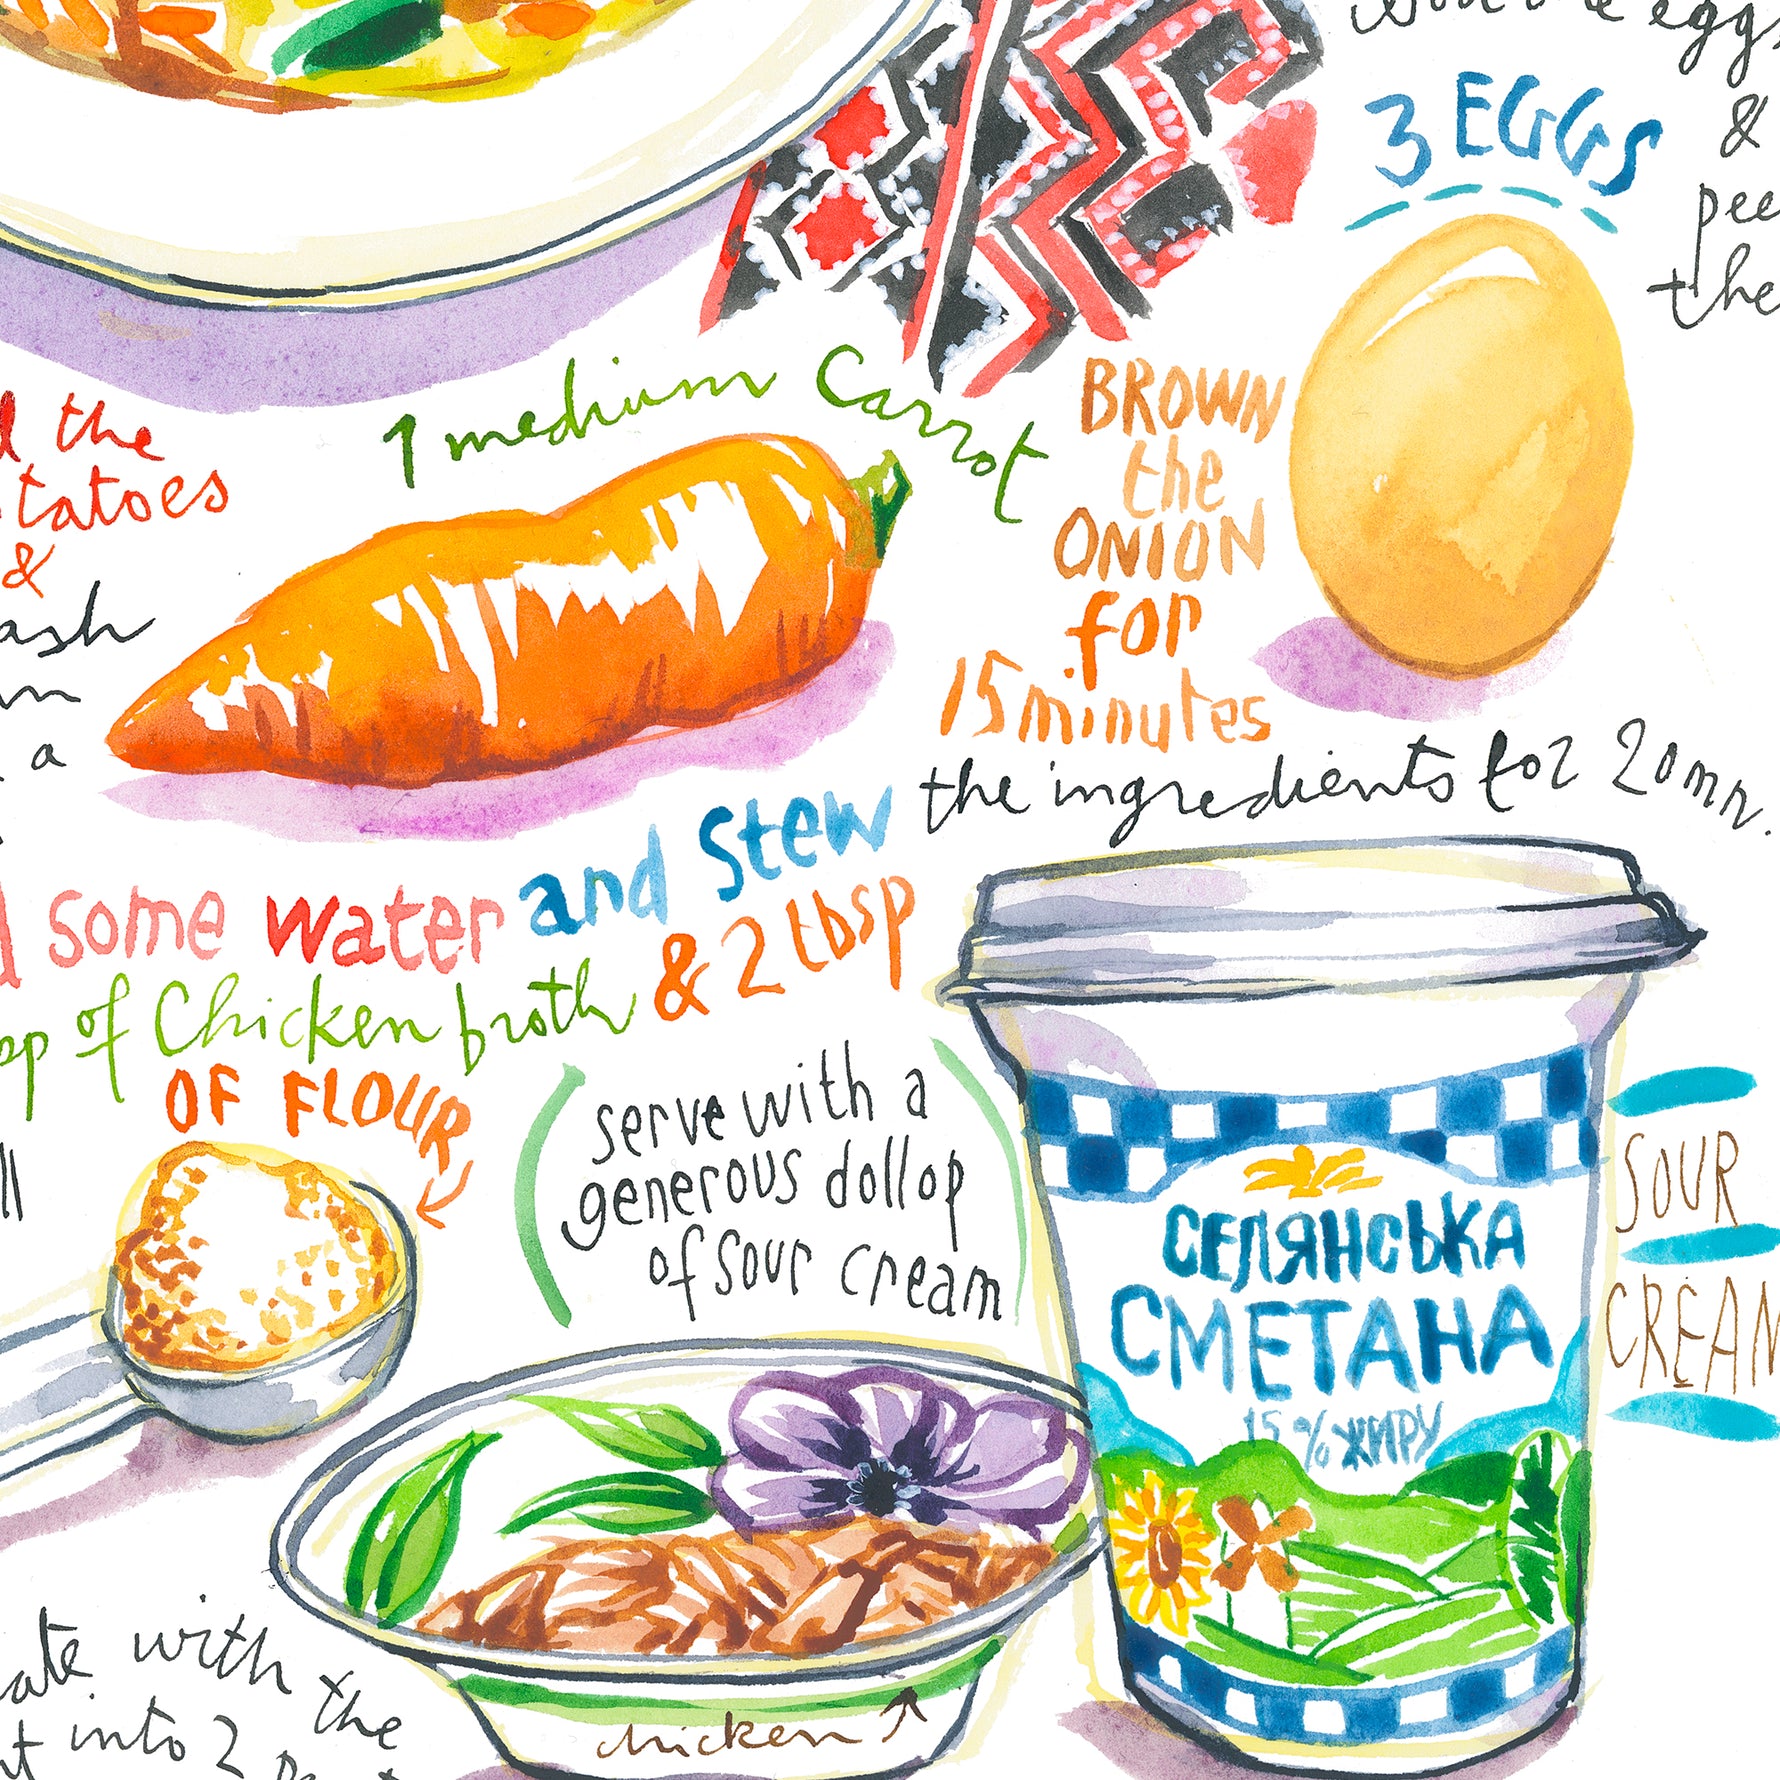 eggs
3 EGGS
&
pee
the
1 medium Carrot
BROWN
the
ONION
for
15 minutes
the
tatoes
&
ash
a
the ingredients for 20 mn.
some water and Stew
of Chicken broth & 2 tbsp
OF FLOUR
(serve with a
generous dollop
of sour cream)
СЕЛЯНСЬКА
СМЕТАНА
15% ЖИРУ
SOUR
CREAM
ate with the
into 2
chicken